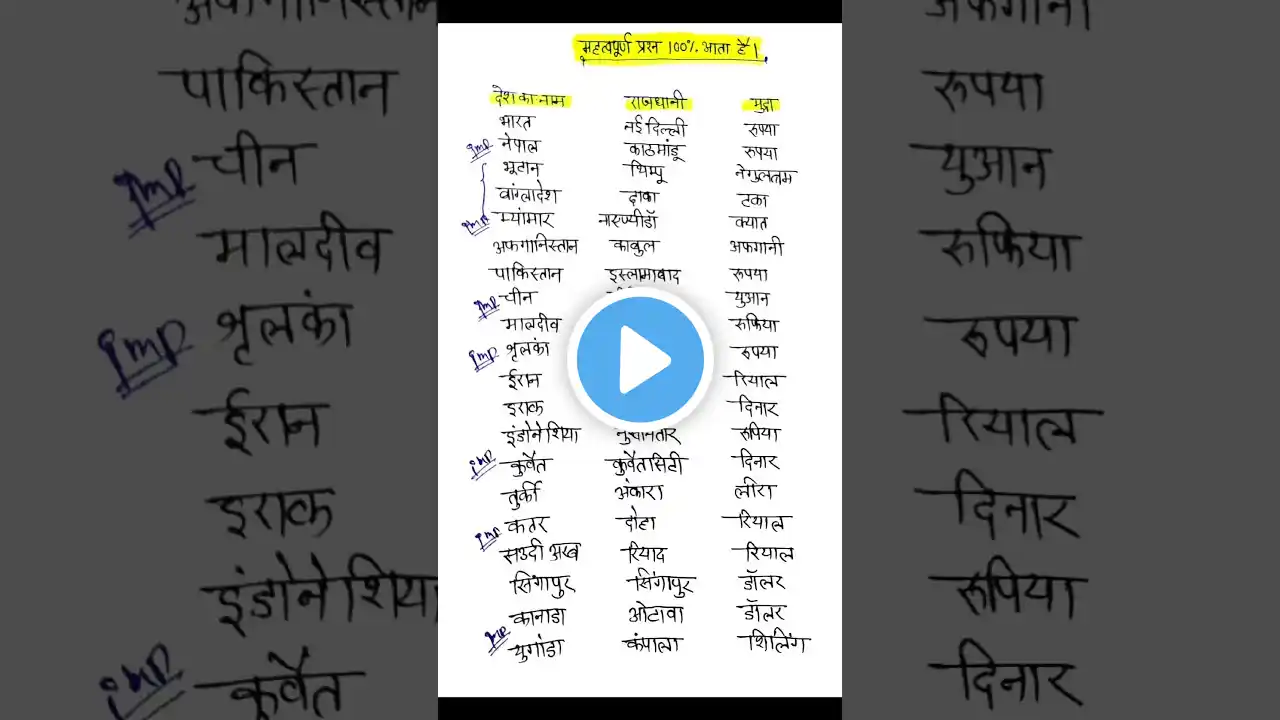 महत्वपूर्ण प्रश्न 100% आता है।
देश का नाम राजधानी मुद्रा
भारत नई दिल्ली रुपया
imp नेपाल काठमांडू रुपया
भूटान थिम्पू नेगुलतम
बांग्लादेश ढाका टका
imp म्यांमार नाएप्यीडॉ क्यात
अफगानिस्तान काबुल अफगानी
पाकिस्तान इस्लामाबाद रूपया
imp चीन युआन
मालदीव रुफिया
imp श्रृलंका रुपया
ईरान रियाल
इराक दिनार
इंडोनेशिया रुपिया
imp कुवैत कुवैत सिटी दिनार
तुर्की अंकारा लीरा
imp कतर दोहा रियाल
सउदी अरब रियाद रियाल
सिंगापुर सिंगापुर डॉलर
कानाडा ओटावा डॉलर
imp युगांडा कंपाला शिलिंग
अफगानिस्तान अफगानी
पाकिस्तान रूपया
imp चीन युआन
मालदीव रुफिया
imp श्रृलंका रुपया
ईरान रियाल
इराक दिनार
इंडोनेशिया रुपिया
imp कुवैत दिनार